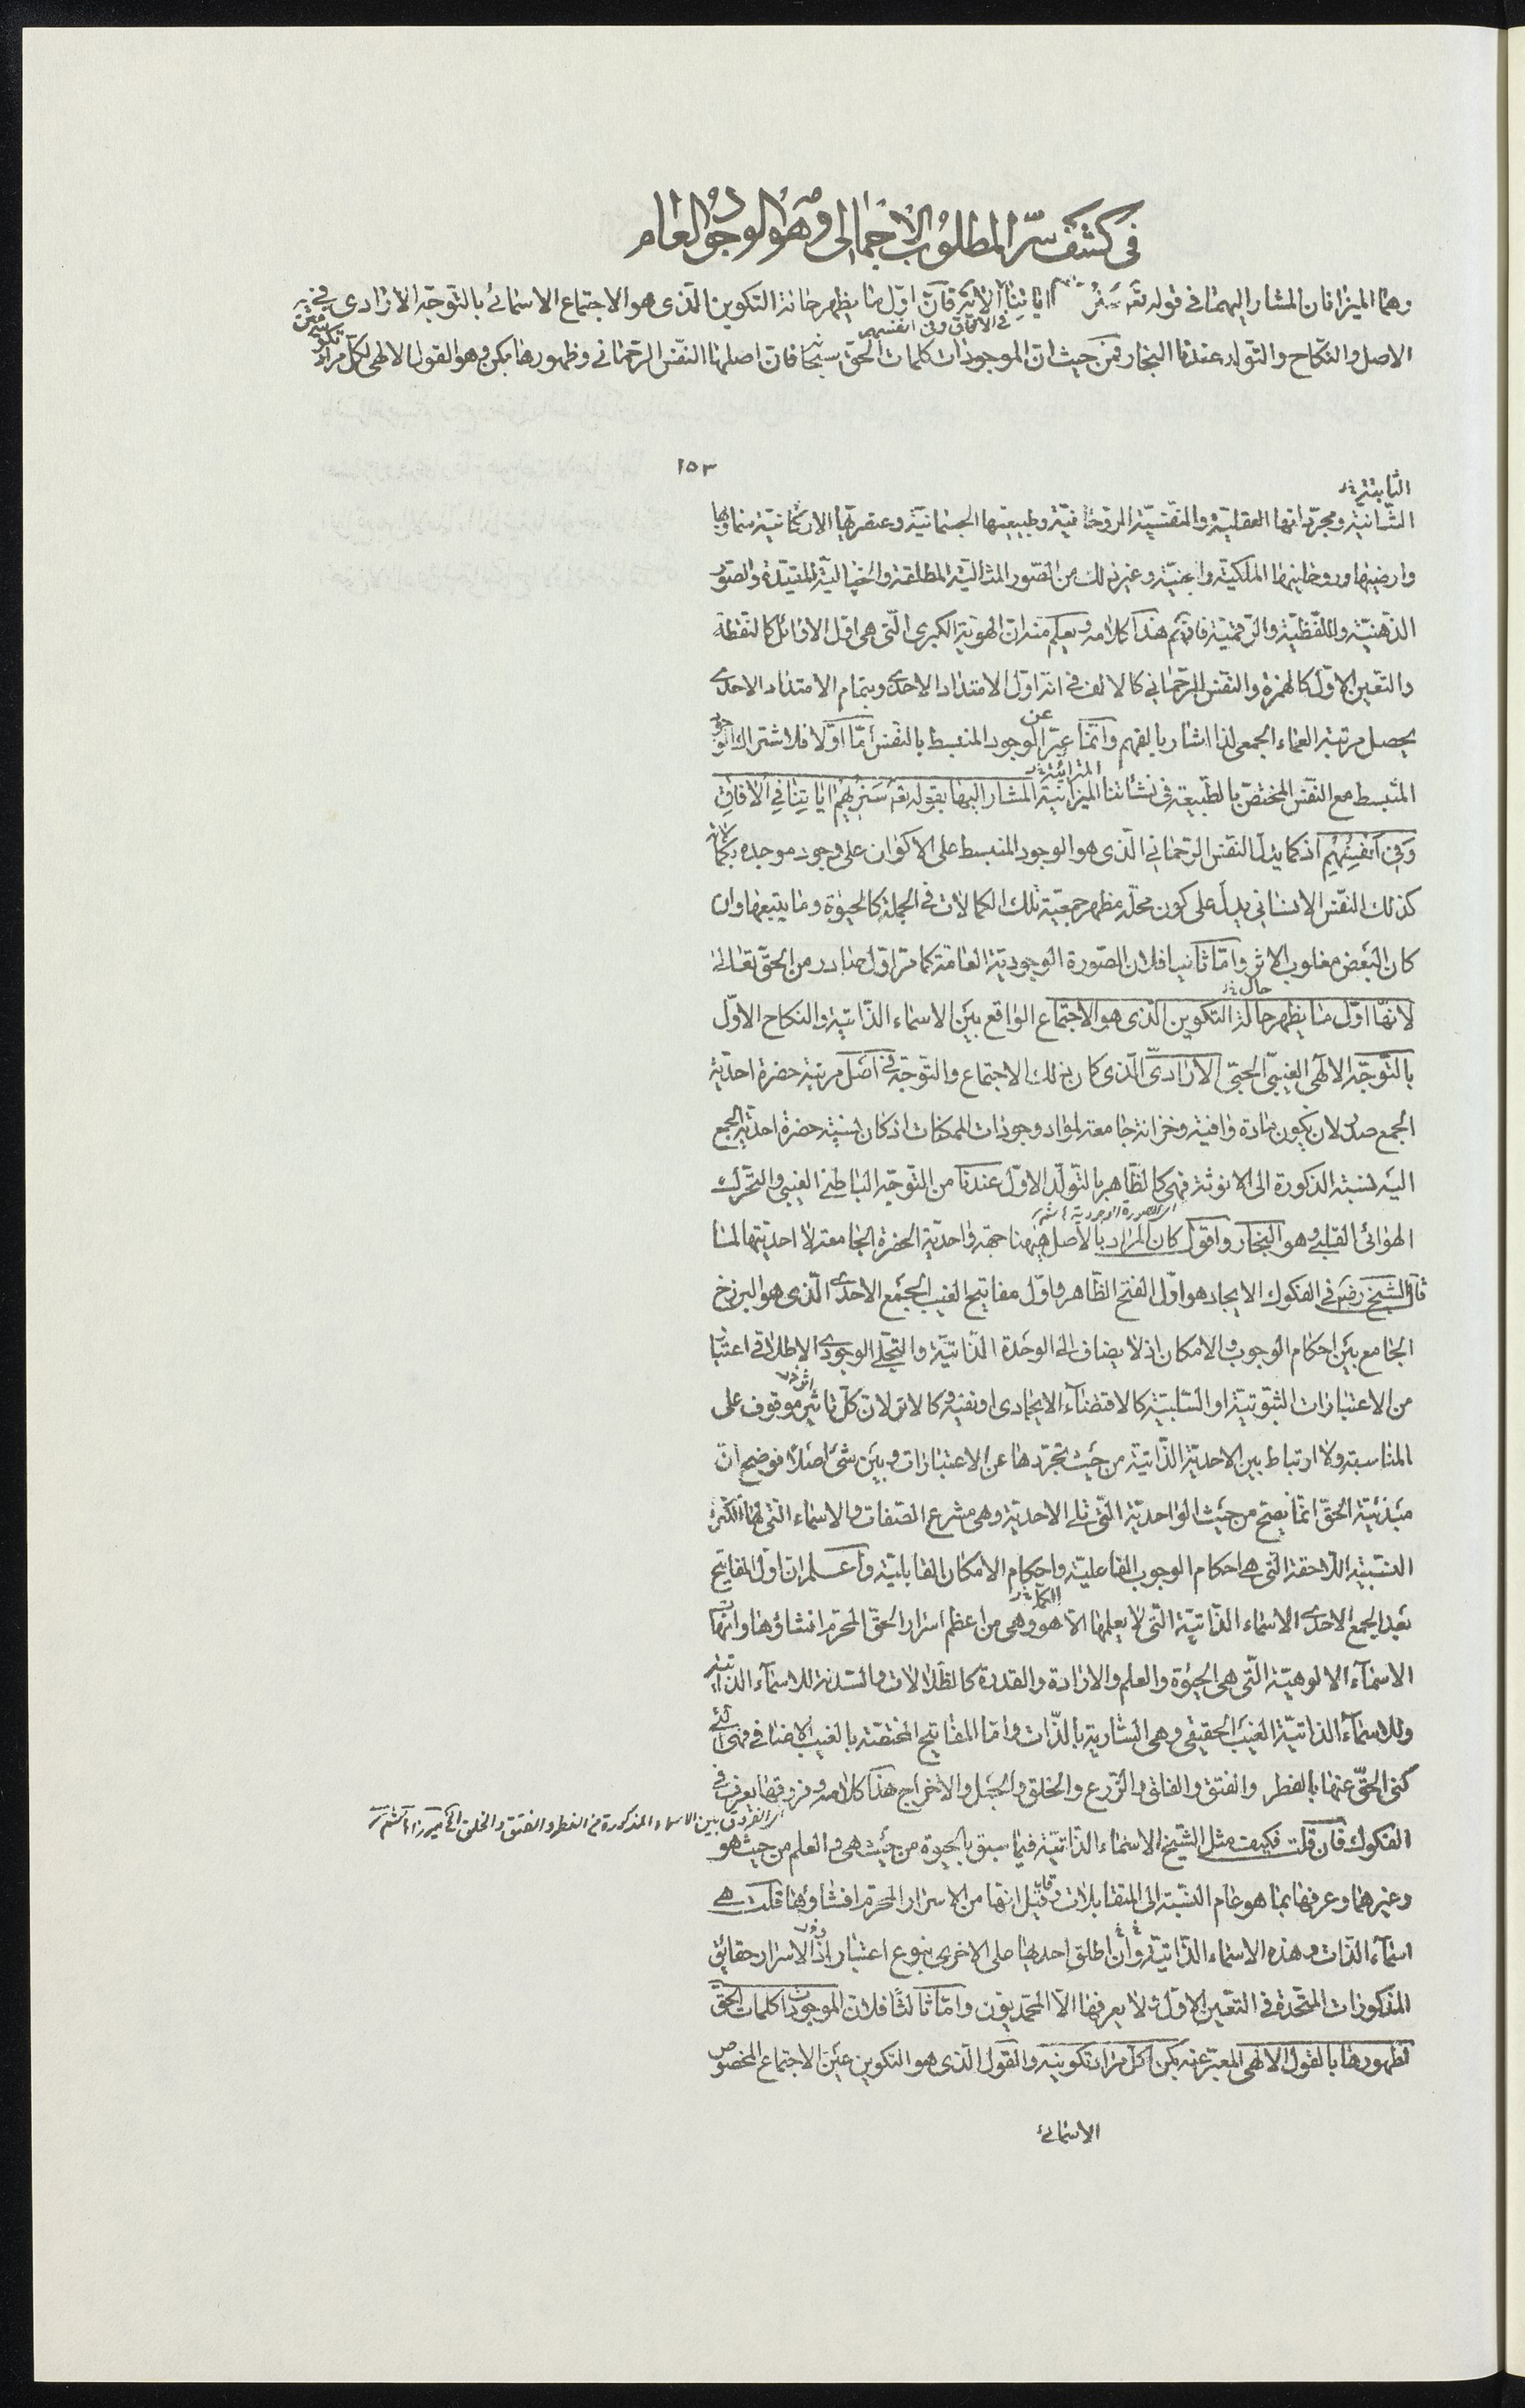 في كشف سرّ المطلوب الاجمالى وهو الوجود العام
وهما الميزانان المشار اليهما فى قوله تعه سنر اياتنا الاية فان اوّل ما يظهر حالة التكوين الذى هو الاجتماع الاسمائى بالتوجّه الارادى فى
فى الافاق وفى انفسهم
الاصل والنكاح والتولد عندنا البخار فمن حيث ان الموجودات كلمات الحق سبحانه فان اصلها النفس الرحمانى وظهورها بكن وهو القول الالهى لكل مراد
١٥٣
الثابتة
الثانية ومجرداتها العقلية والنفسيّة الروحانيّة وطبيعتها الجسمانيّة وعنصرياتها الاركانيّة سماويها
وارضيتها وروحانيتها الملكية والجنيّة وغير ذلك من الصور المثاليّة المطلقة والخياليّة المقيّدة والصور
الذهنيّة واللفظيّة والرقميّة فافهم هذا كلامه ويعلم منه ان الهوية الكبرى الّتى هى اوّل الاوائل كالنقطة
والتعين الاوّل كالهمزة والنفس الرحمانى كالالف فى انه اوّل الامتداد الاحدى وبتمام الامتداد الاحدى
يحصل مرتبة العماء الجمعى لذا اشار بالفهم وانّما عبّر عن الوجود المنبسط بالنفس امّا اوّلا فلاشتراك الوجود
المنبسط مع النفس المختصّ بالطبيعة فى نشاتنا الميزانية المشار اليها بقوله تعه سَنُرِيهِمْ اياتِنا فِي الْافاقِ
المرائية
وَفِي اَنفسِهِمِ اذ كما يدلّ النفس الرحمانى الّذى هو الوجود المنبسط على الاكوان على وجود موجده بكمالاته
كذلك النفس الانسانى يدلّ على كون محلّه مظهر جمعيّة تلك الكمالات فى الجملة كالحيوة وما يتبعها وان
كان البعض مغلوب الاثر وامّا ثانيا فلان الصّورة الوجوديّة العامّة كما مرّ اوّل صادر من الحقّ تعالى
حال
لانّها اوّل ما يظهر حالة التكوين الّذى هو الاجتماع الواقع بين الاسماء الذّاتية والنكاح الاوّل
بالتّوجّه الالٓهى الغيبىّ الحبّى الارادىّ الّذى كان ذلك الاجتماع والتوجّه فى اصل مرتبة حضرة احديّة
الجمع صلح لان يكون مادة وافية وخزانة جامعة لمواد وجودات الممكنات اذ كان نسبة حضرة احديّة الجمع
اليه نسبة الذكورة الى الانوثة فهى كالظّاهر بالتولّد الاوّل عندنا من التوجّه الباطنى الغيبى والتحرّك
اى الصورة الوجودية
الهوائى القلبى وهو البخار واقول كان المراد بالاصل هيهنا جهة واحديّة الحضرة الجامعة لا احديّتها لما
قال الشيخ رضه فى الفكوك الايجاد هو اوّل الفتح الظّاهر واوّل مفاتيح الغيب الجمع الاحدى الّذى هو البرزخ
الجامع بين احكام الوجوب والامكان اذ لا يضاف الى الوحدة الذّاتيّة والتجلّى الوجودى الاطلاقى اعتبار
من الاعتبارات الثبوتيّة او السّلبيّة كالاقتضاء الايجادى او نفيه وكالاثر لان كلّ تاثير موقوف على
المناسبة ولا ارتباط بين الاحديّة الذّاتيّة من حيث تجرّدها عن الاعتبارات وبين شئ اصلًا فوضح انّ
مبدئيّة الحقّ انّما يصحّ من حيث الواحديّة الّتى تلى الاحديّة وهى مشرع الصّفات والاسماء الّتى لها الكثرة
النسبيّة اللّاحقة الّتى هى احكام الوجوب الفاعليّة واحكام الامكان القابليّة واعلم ان اوّل المفاتيح
الكمّل
بعد الجمع الاحدى الاسماء الذّاتيّة الّتى لا يعلمها الّا هو وهى من اعظم اسرار الحقّ المحرّم افشاؤها وانّها
الاسمآء الالوهيّة الّتى هى الحيوة والعلم والارادة والقدرة كالظّلالات والسّدنة للاسمآء الذّاتيّة
وللاسمآء الذاتيّة الغيب الحقيقى وهى السّارية بالذّات وامّا المفاتيح المختصّة بالغيب الاضافى فهى الّتى
كنى الحقّ عنها بالفطر والفتق والفلق والزرع والخلق والجعل والاخراج هذا كلامه وفروقها يعرف فى
اى الفروق بين الاسماء المذكورة من الفطر والفتق والخلق
الفكوك فان قلت فكيف مثل الشّيخ الاسماء الذّاتيّة فيما سبق بالحيوة من حيث هى والعلم من حيث هو
وغيرهما وعرفها بما هو عام النسبة الى المتقابلات وقيل انّها من الاسرار المحرّم افشاؤها قلت هى
اسمآء الذّات وهذه الاسماء الذّاتيّة وان اطلق احديها على الاخرى بنوع اعتبار اذ الاسرار حقايق
المذكورات المتّحدة فى التعيّن الاوّل ولا يعرفها الّا المحمّديون وامّا ثالثا فلان الموجودات كلمات الحقّ
لظهورها بالقول الالهى المعبّر عنه بكن لكلّ مراد تكوينه والقول الّذى هو التكوين عين الاجتماع المخصوص
الاسمائى